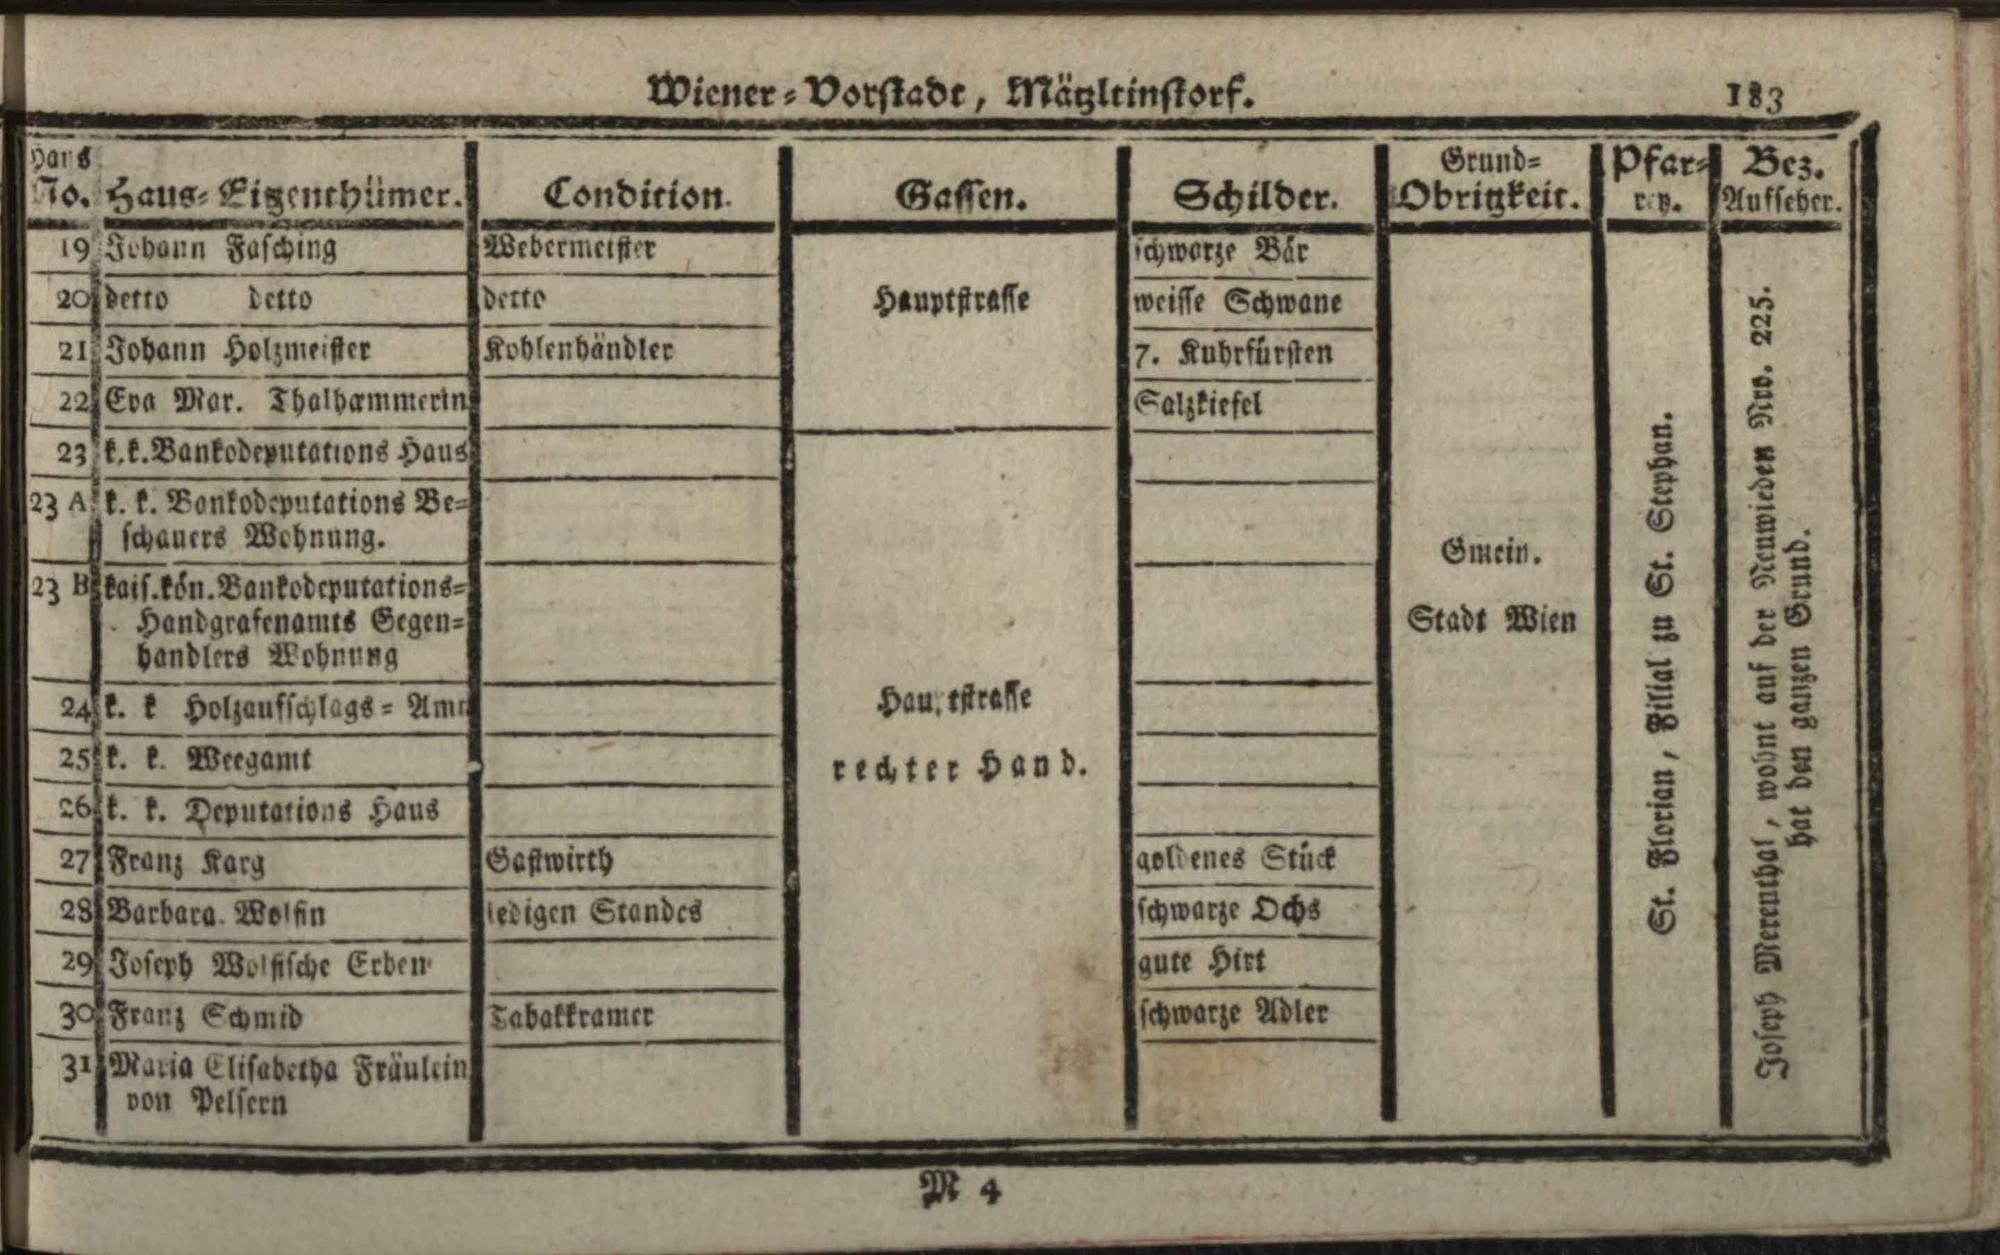 Wiener-Vorstadt, Mätzleinstorf. 183
Haus No. Haus-Eigenthümer. Condition. Gassen. Schilder. Grund-Obrigkeit. Pfarrey. Bez. Aufseher.
19 Johann Fasching Webermeister schwarze Bär
20 detto detto detto Hauptstrasse weisse Schwane
21 Johann Holzmeister Kohlenhändler 7. Kuhrfürsten
22 Eva Mar. Thalhammerin Salzkiefel
23 k.k. Bankodeputations Haus
23 A k. k. Bankodeputations Be-
schauers Wohnung.
23 B kais. kön. Bankodeputations-
Handgrafenamts Gegen-
handlers Wohnung
24 k. k Holzaufschlags-Amt
25 k. k. Weegamt
26 k. k. Deputations Haus
27 Franz Karg Gastwirth goldenes Stück
28 Barbara Wolfin ledigen Standes schwarze Ochs
29 Joseph Wolfische Erben gute Hirt
30 Franz Schmid Tabakkramer schwarze Adler
31 Maria Elisabetha Fräulein
von Pelsern
Hauptstrasse
rechter Hand.
Gmein.
Stadt Wien
St. Florian, Filial zu St. Stephan.
Joseph Merenthal, wohnt auf der Neuwieden Nro. 225.
hat den ganzen Grund.
M 4